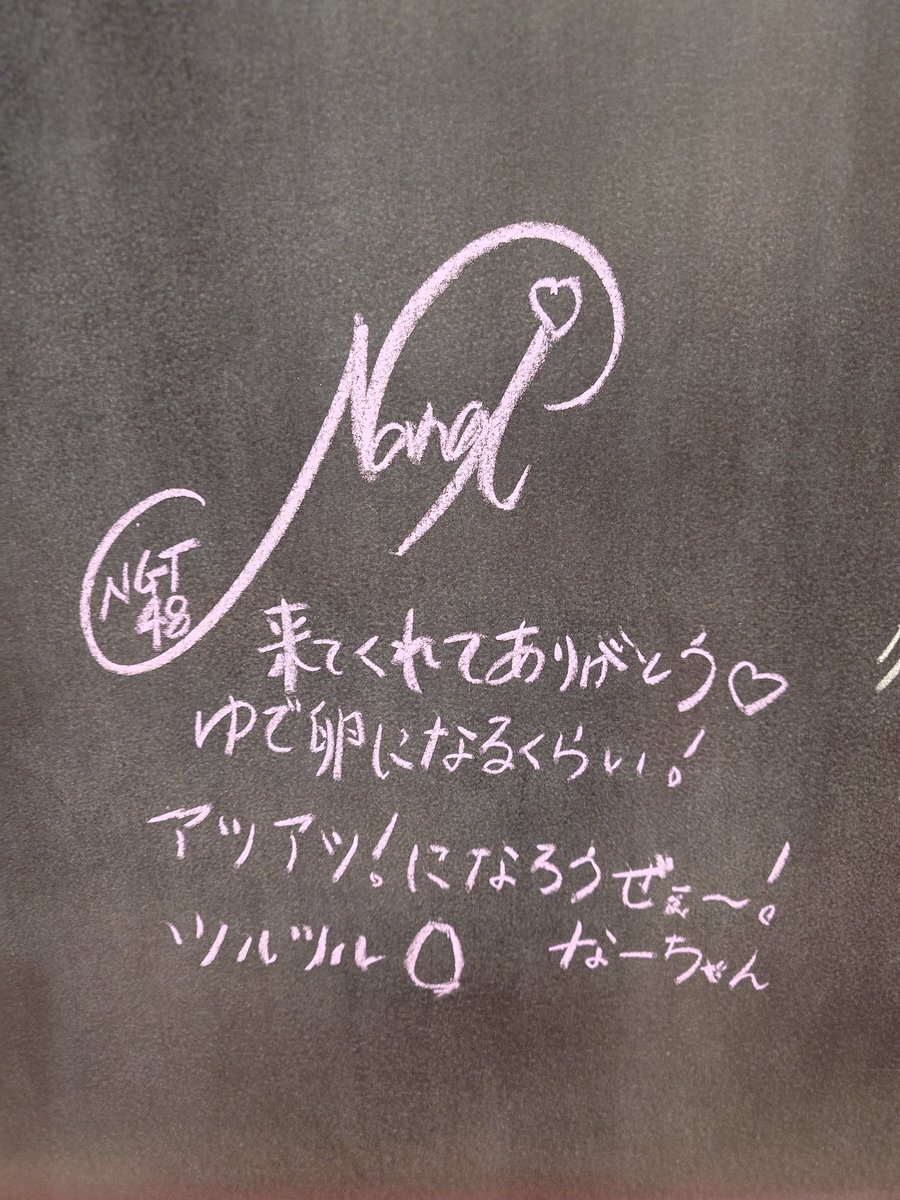 NGT
48
来てくれてありがとう♡
ゆで卵になるくらい!
アツアツ!になろうぜぇ〜!
ツルツル なーちゃん